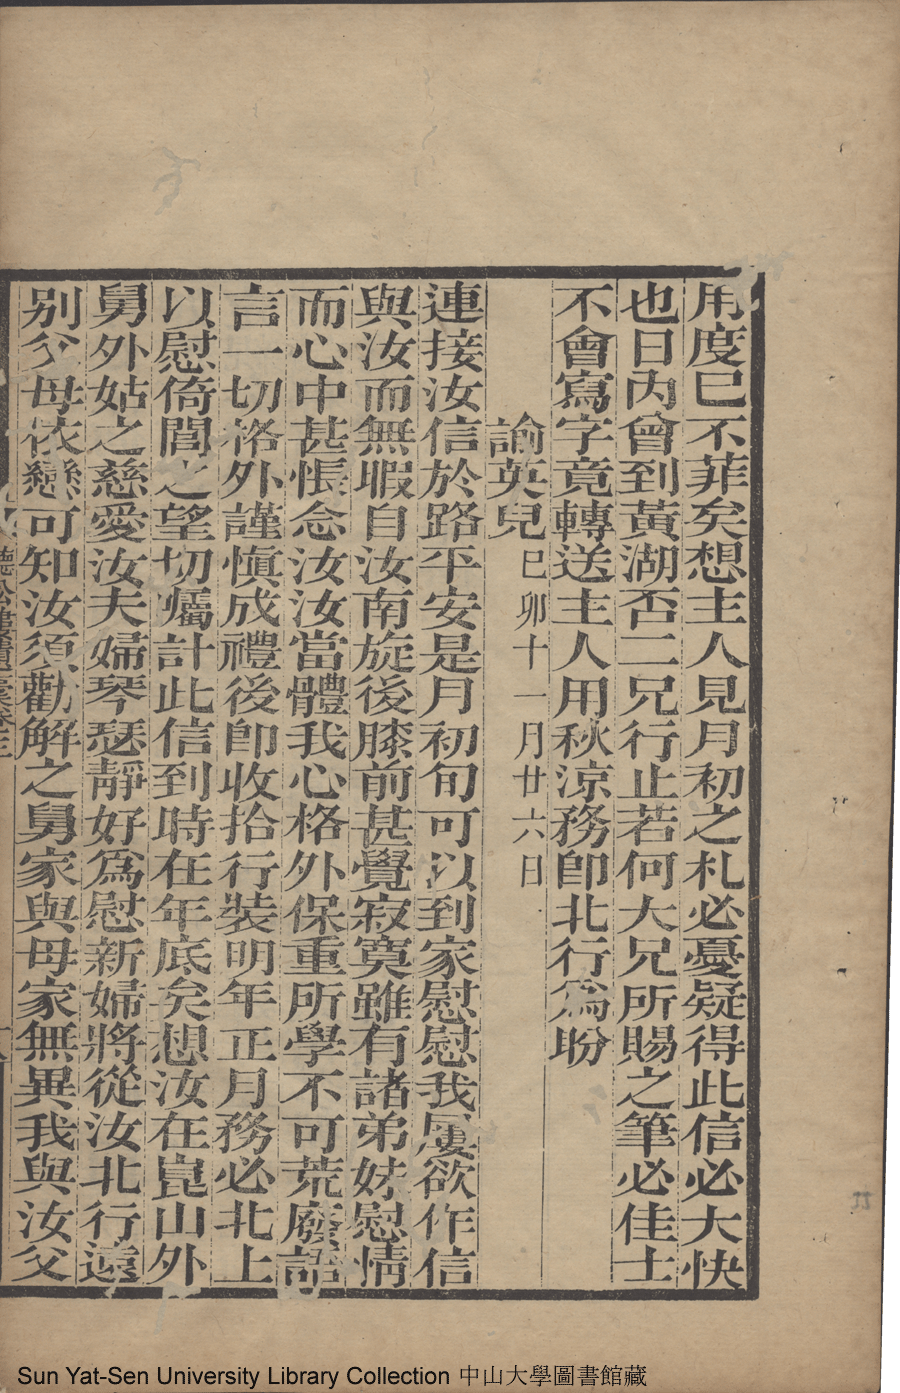 用度已不菲矣想主人見月初之札必憂疑得此信必大快
也日內會到黃湖否二兄行止若何大兄所賜之筆必佳士
不會寫字竟轉送主人用秋涼務卽北行爲盼
諭英兒 己卯十一月廿六日
連接汝信於路平安是月初旬可以到家慰慰我屢欲作信
與汝而無暇自汝南旋後膝前甚覺寂寞雖有諸弟妹慰情
而心中甚悵念汝汝當體我心格外保重所學不可荒廢語
言一切格外謹愼成禮後卽收拾行裝明年正月務必北上
以慰倚閭之望切囑計此信到時在年底矣想汝在崑山外
舅外姑之慈愛汝夫婦琴瑟靜好爲慰新婦將從汝北行遠
別父母依戀可知汝須勸解之舅家與母家無異我與汝父
Sun Yat-Sen University Library Collection 中山大學圖書館藏